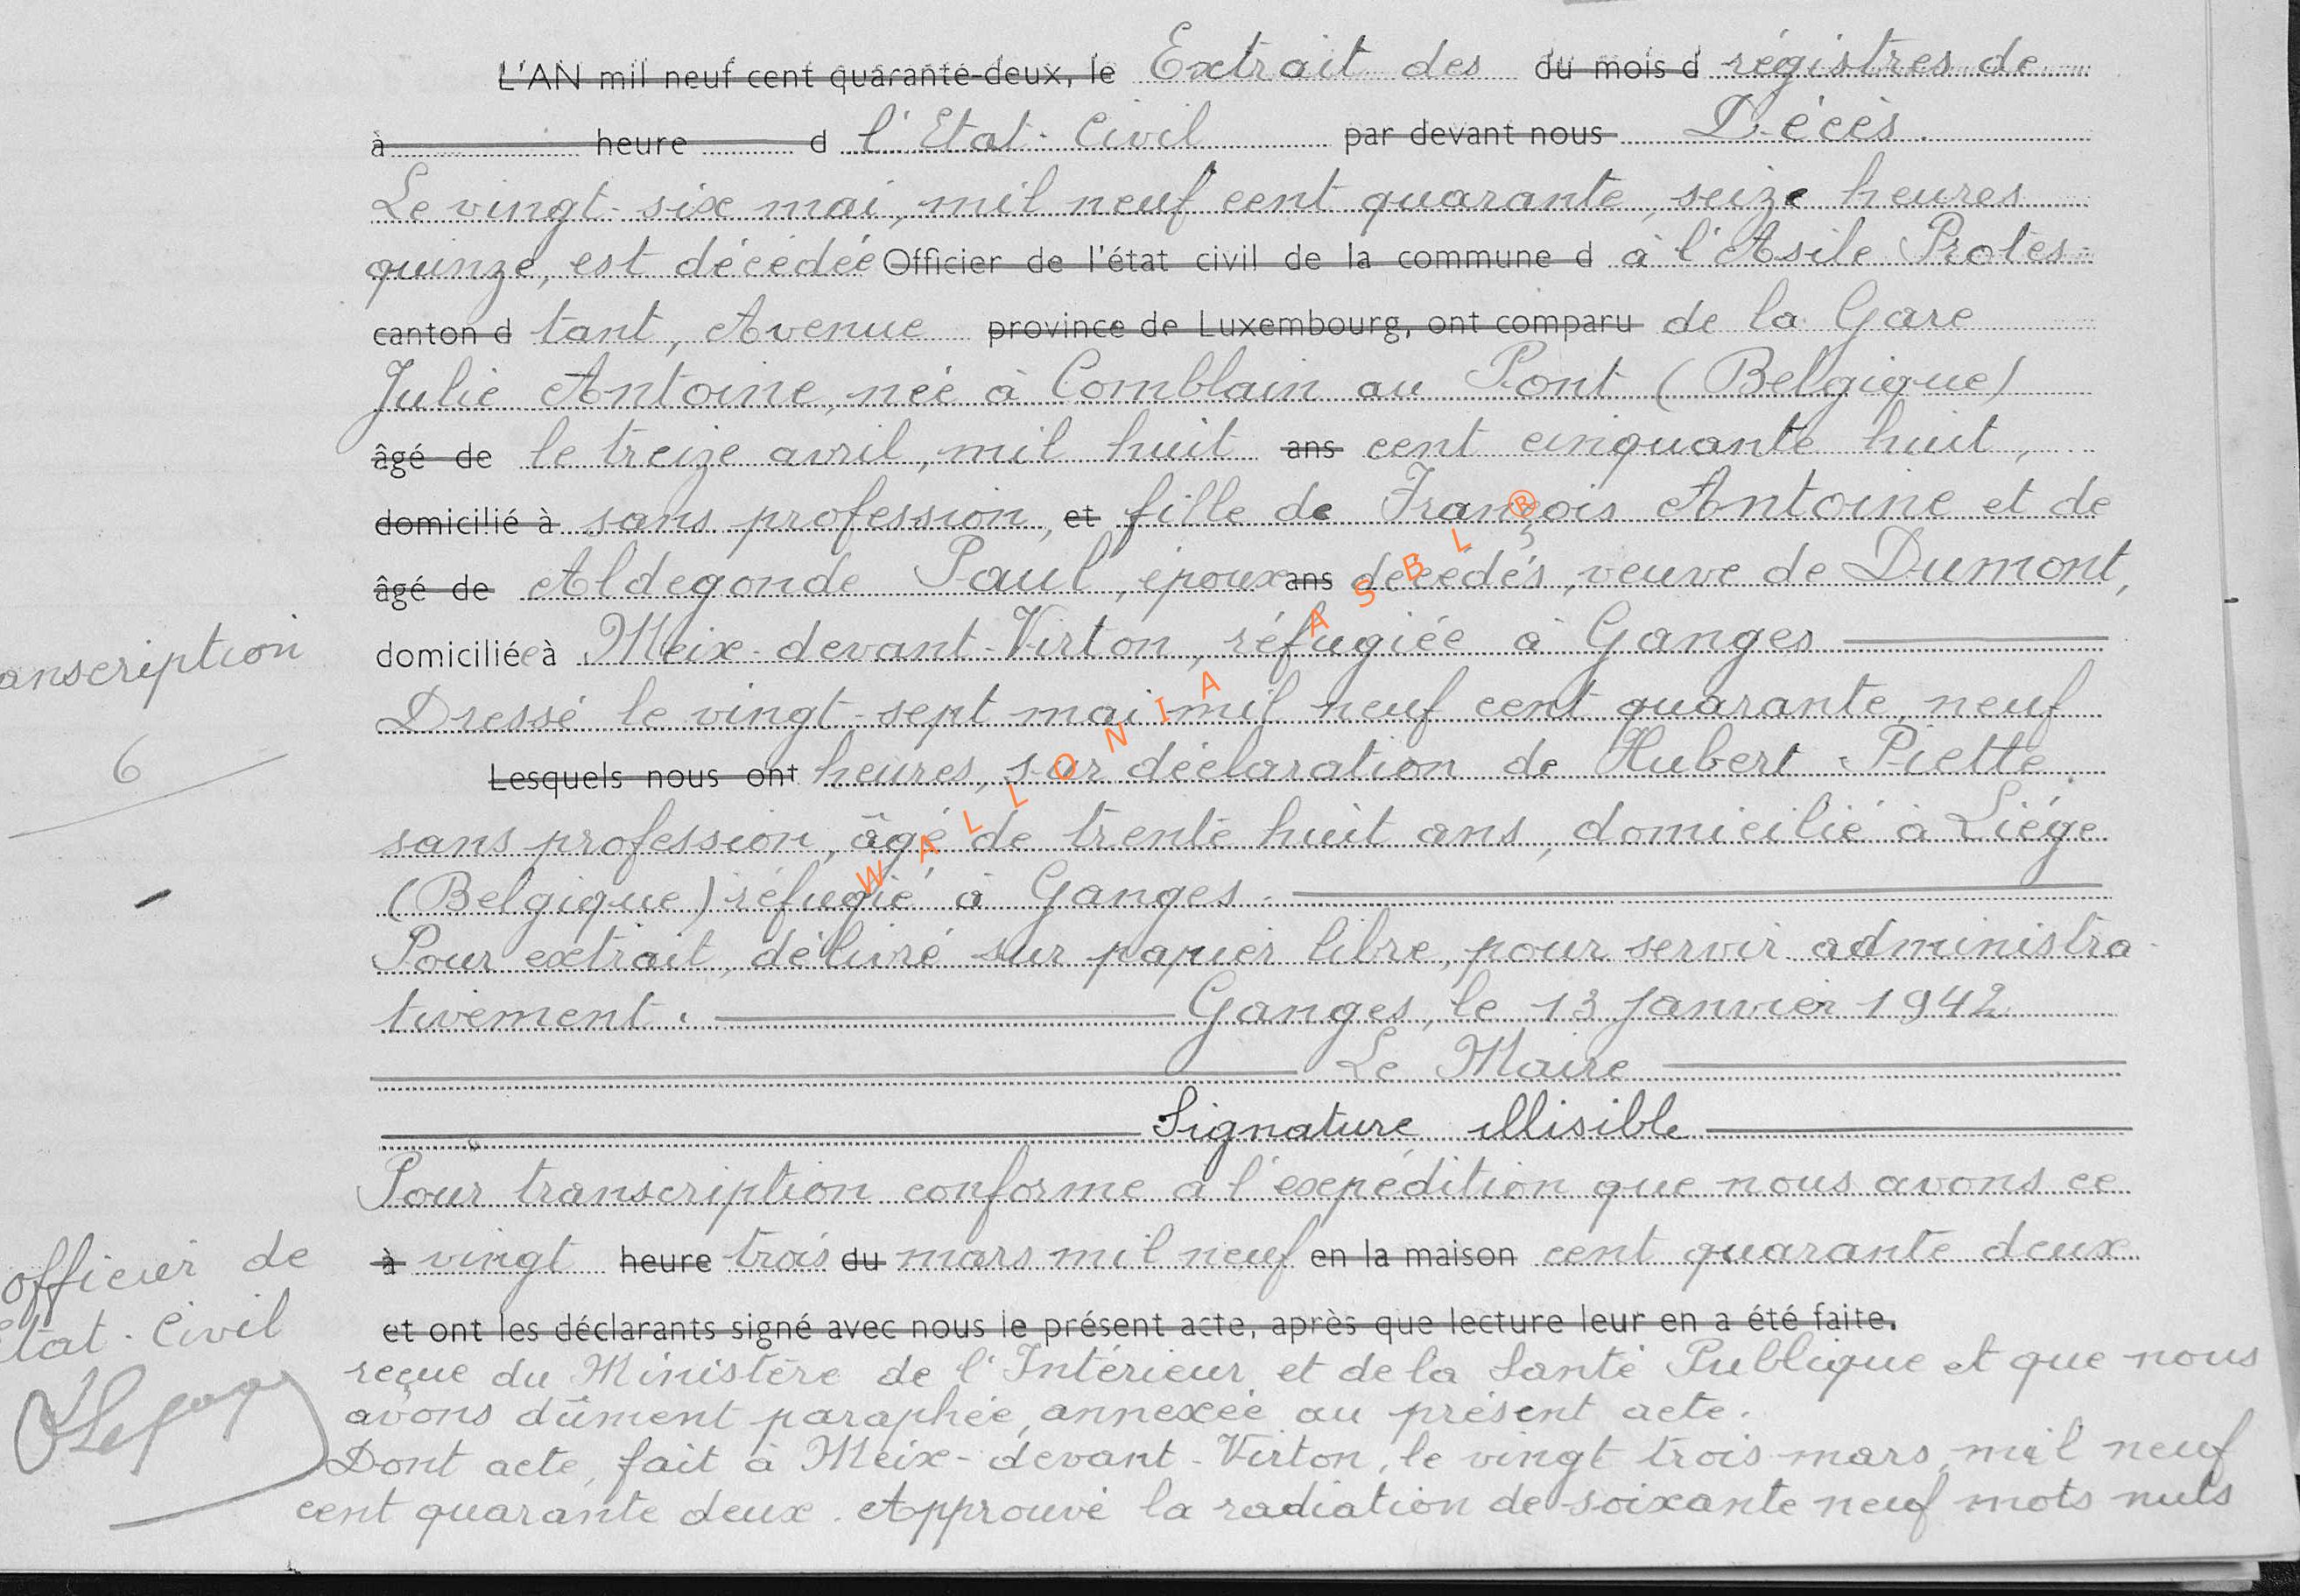 L'AN mil neuf cent quarante-deux, le Extrait des du mois d régistres de
à heure d l'Etat-Civil par devant nous Décès.
Le vingt-six mai, mil neuf cent quarante, seize heures
quinze, est décédée Officier de l'état civil de la commune d à l'Asile Protes-
canton d tant, Avenue province de Luxembourg, ont comparu de la Gare
Julie Antoine, née à Comblain au Pont (Belgique)
âgé de le treize avril, mil huit ans cent cinquante huit,
domicilié à sans profession, et fille de François Antoine et de
âgé de Aldegonde Paul, époux ans décédés, veuve de Dumont,
domiciliée à Meix-devant-Virton, réfugiée à Ganges
anscription
Dressé le vingt-sept mai mil neuf cent quarante, neuf
6
Lesquels nous ont heures, sur déclaration de Hubert Piette,
sans profession, âgé de trente huit ans, domicilié à Liége
(Belgique) réfugié à Ganges.
Pour extrait, délivré sur papier libre, pour servir administra-
tivement. Ganges, le 13 Janvier 1942
Le Maire
Signature illisible
Pour transcription conforme à l'expédition que nous avons ce
à vingt heure trois du mars mil neuf en la maison cent quarante deux
officier de
état-Civil
et ont les déclarants signé avec nous le présent acte, après que lecture leur en a été faite.
reçue du Ministère de l'Intérieur et de la Santé Publique et que nous
avons dûment paraphée, annexée au présent acte.
Dont acte, fait à Meix-devant-Virton, le vingt trois mars, mil neuf
cent quarante deux. Approuvé la radiation de soixante neuf mots nuls
WALLONIA ASBL ®